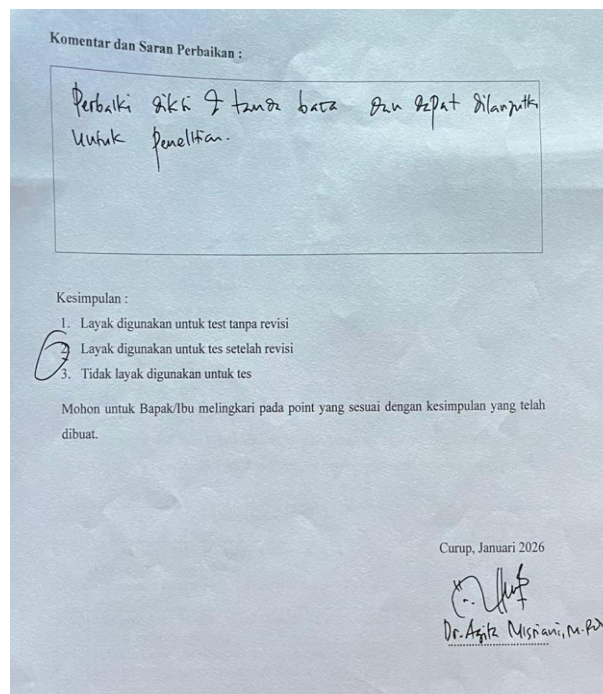 Komentar dan Saran Perbaikan :
Perbaiki diksi & tanda baca dan dapat dilanjutkan
untuk penelitian.
Kesimpulan :
1. Layak digunakan untuk test tanpa revisi
2. Layak digunakan untuk tes setelah revisi
3. Tidak layak digunakan untuk tes
Mohon untuk Bapak/Ibu melingkari pada point yang sesuai dengan kesimpulan yang telah
dibuat.
Curup, Januari 2026
Dr. Agita Misriani, M.Pd